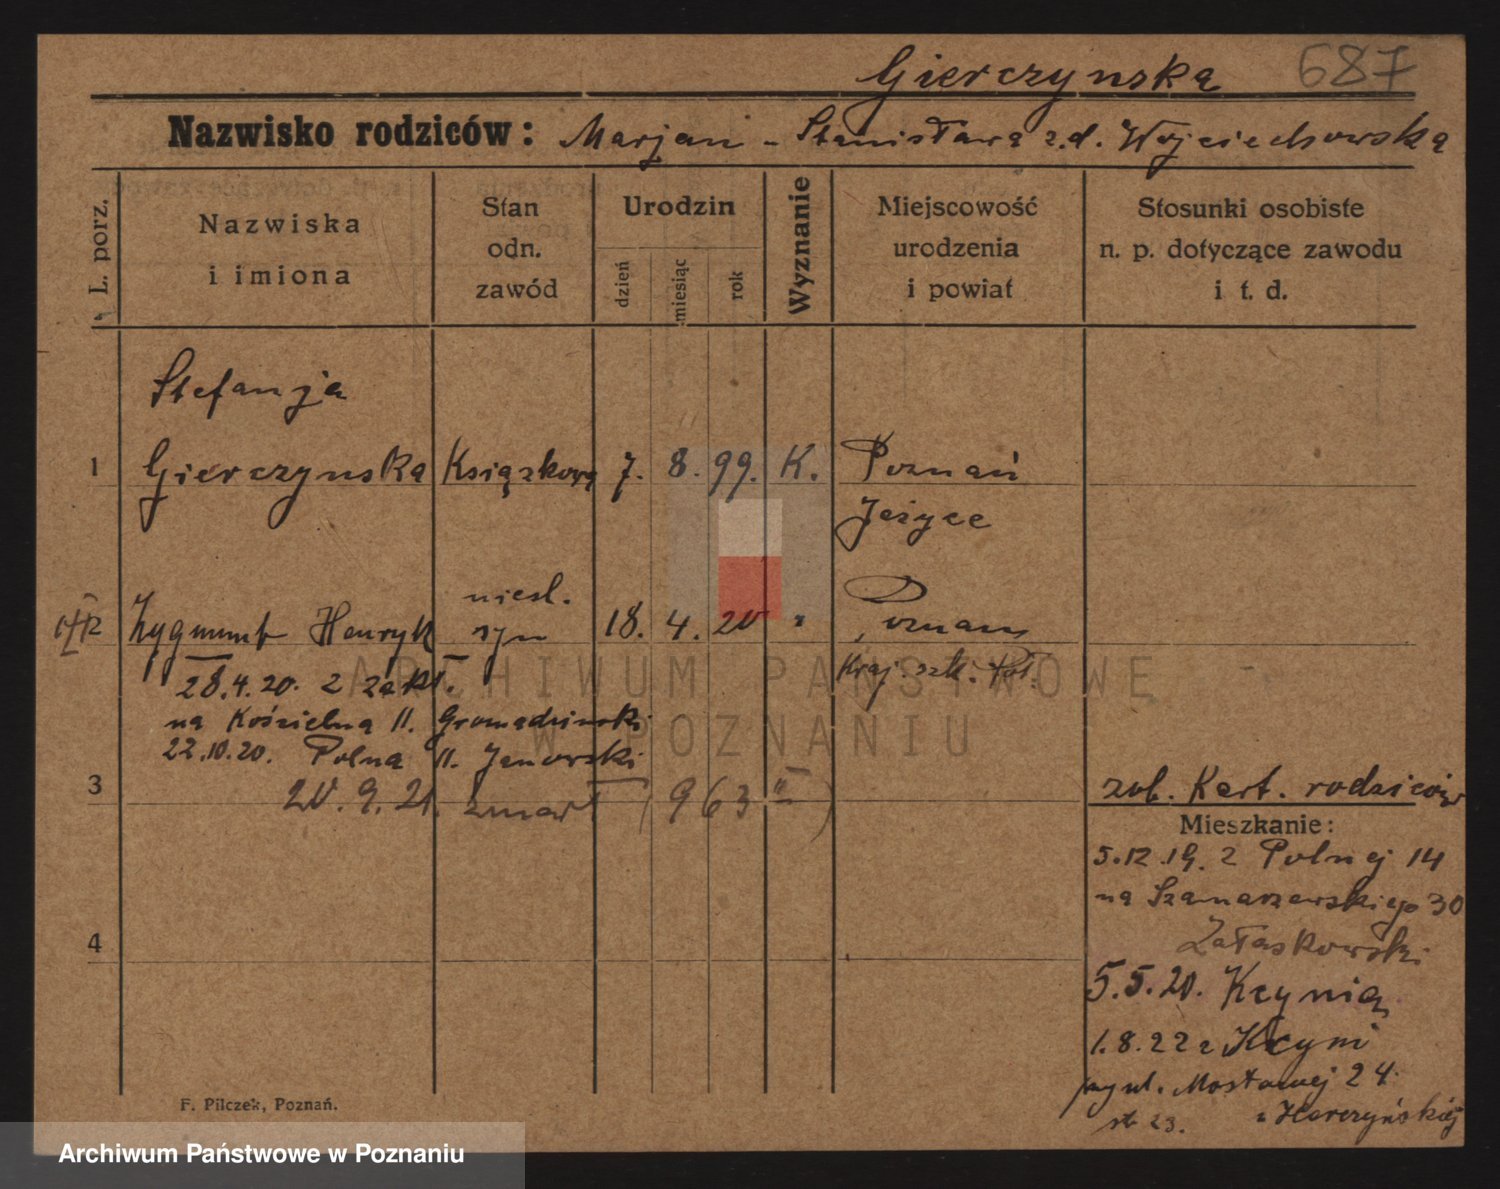 Gierczynska 687
Nazwisko rodziców: Marjan - Stanisława z.d. Wojciechowska
L. porz.
Nazwiska
i imiona
Stan
odn.
zawód
Urodzin
dzień
miesiąc
rok
Wyznanie
Miejscowość
urodzenia
i powiat
Stosunki osobiste
n. p. dotyczące zawodu
i t. d.
Stefanja
1 Gierczynska Książkowa 7. 8. 99. K. Poznań
Jeżyce
niesl.
2 Zygmunt Henryk syn 18. 4. 20 " Poznań
Kraj. szk. Poł.
28.4.20. z zakł.
na Kościelną 11. Gromadzinski
22.10.20. Polna 11. Janowski
3
20. 9. 21. zmarł (963 )
zob. Kart. rodziców
Mieszkanie:
5.12.19. z Polnej 14
na Szamarzewskiego 30
Załaskowski
4
5.5.20. Kcynia
1.8.22 z Kcyni
przy ul. Mostowej 24.
st 23.
F. Pilczek, Poznań.
ARCHIWUM PAŃSTWOWE
W POZNANIU
Archiwum Państwowe w Poznaniu